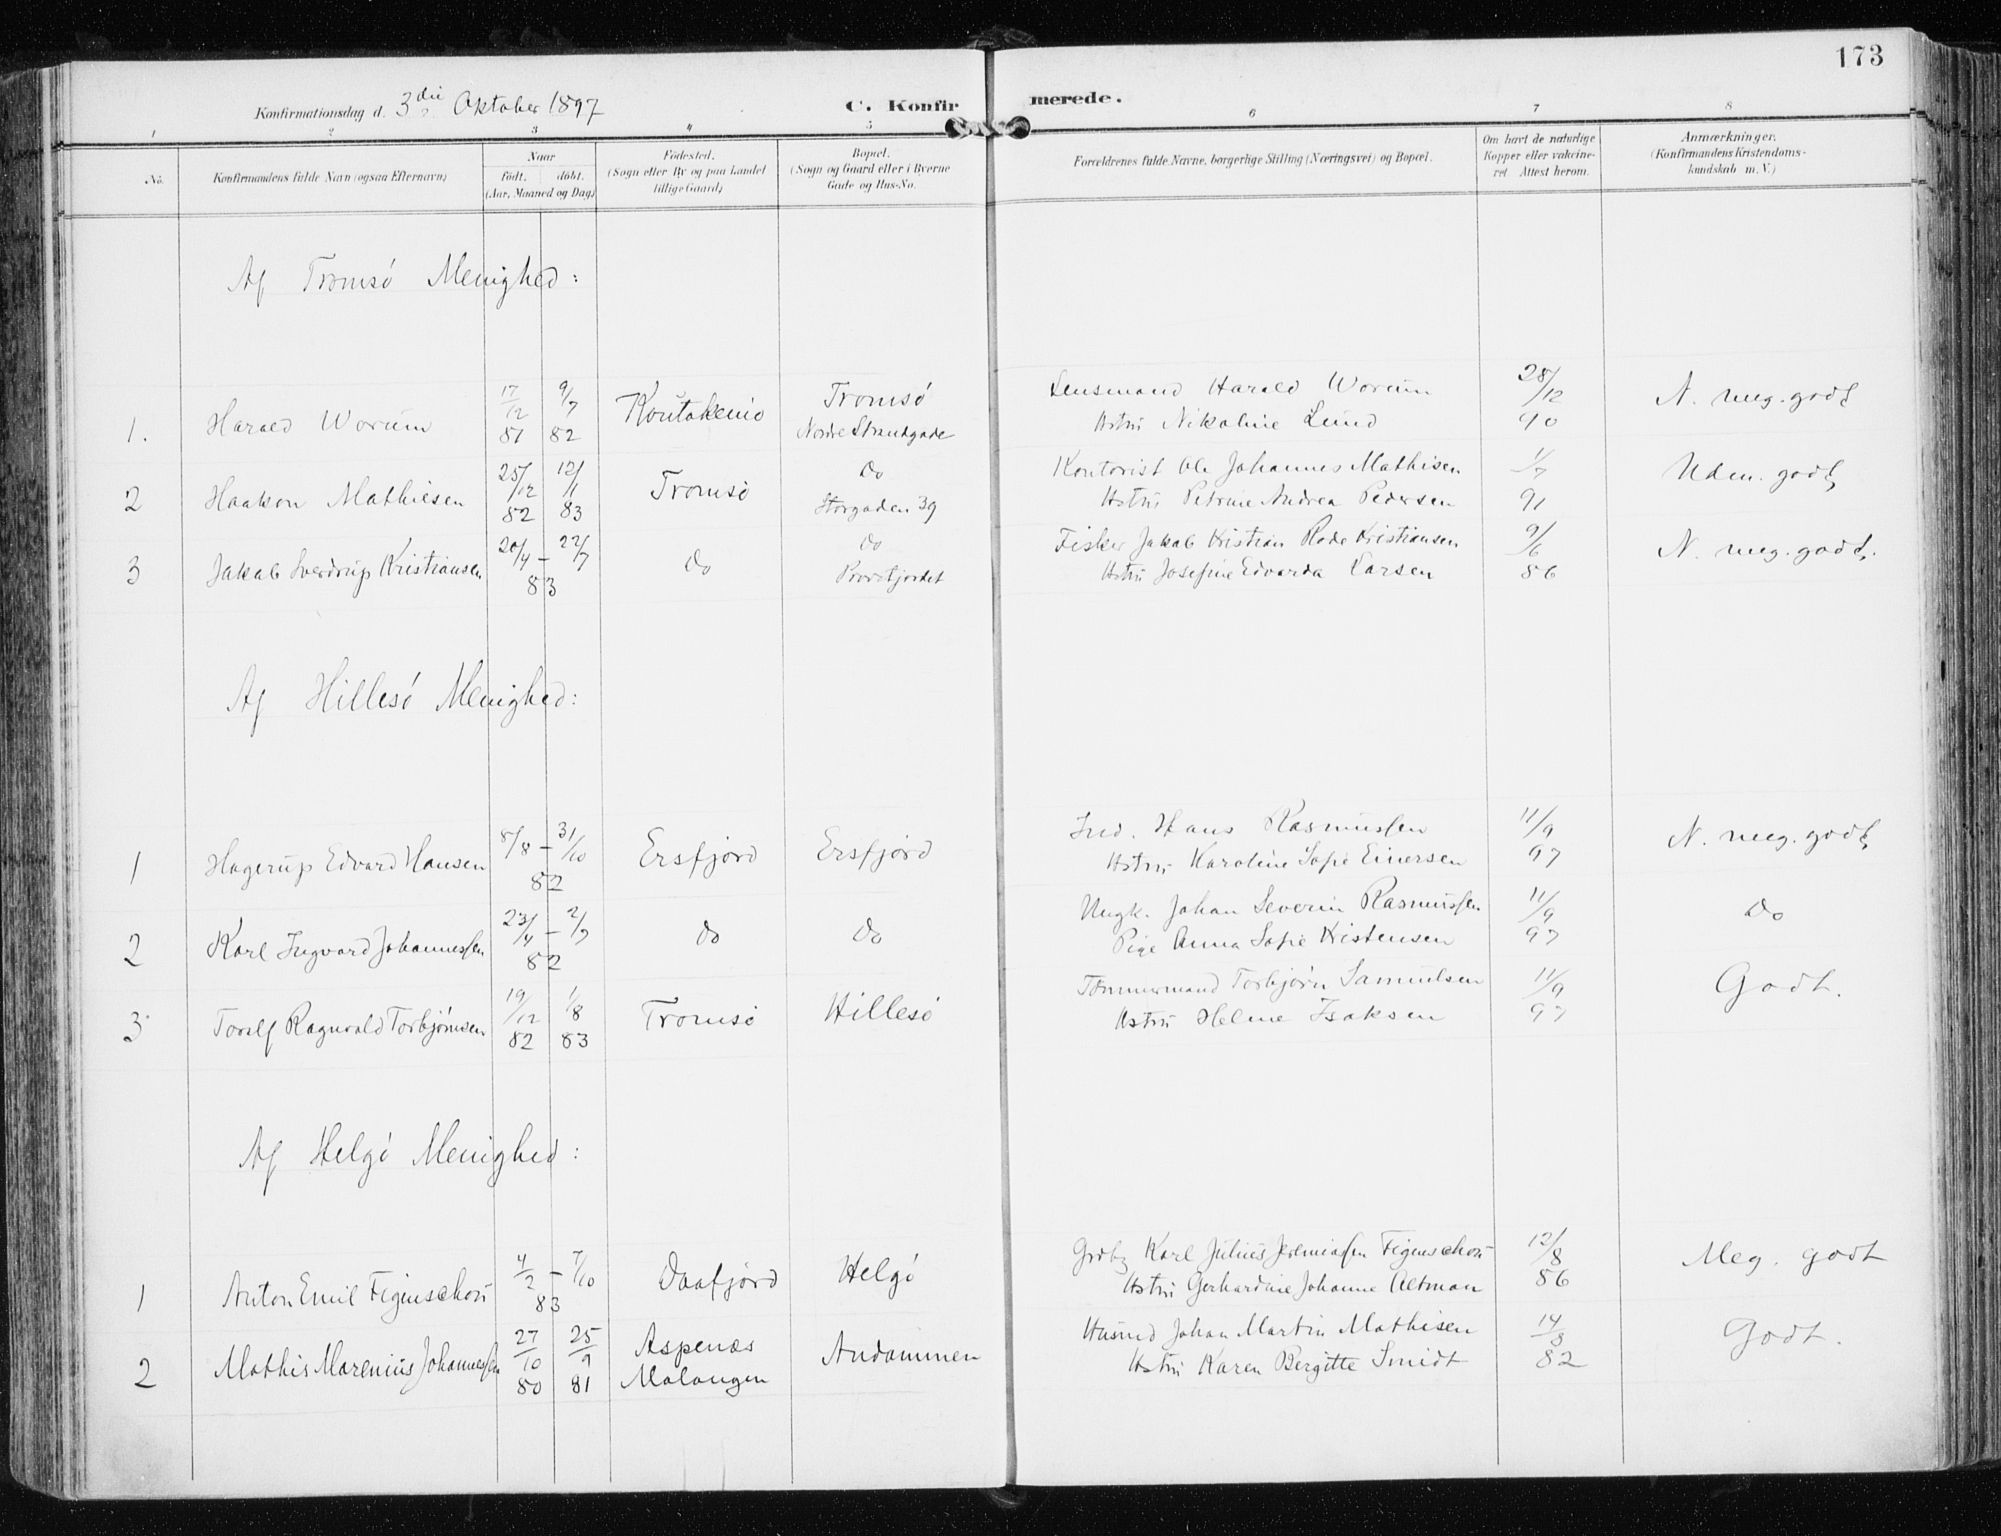 173
Konfirmationsdag d. 3die Oktober 1897
C. Konfirmerede.
1 2 3 4 5 6 7 8
No.
Konfirmandens fulde Navn (ogsaa Efternavn)
Naar
født. døbt.
(Aar, Maaned og Dag)
Fødested.
(Sogn eller By og paa Landet
tillige Gaard)
Bopæl.
(Sogn og Gaard eller i Byerne
Gade og Hus-No.
Forældrenes fulde Navne, borgerlige Stilling (Næringsvei) og Bopæl.
Om havt de naturlige
Kopper eller vakcine-
ret Attest herom.
Anmærkninger.
(Konfirmandens Kristendoms-
kundskab m. V.)
Af Tromsø Menighed:
1. Harald Worum 17/12 81 9/7 82 Koutokeino Tromsø Nordre Strandgade Lensmand Harald Worum Hstru Nikoline Lund 28/12 90 N. meg. godt
2 Haakon Mathiesen 25/12 82 12/1 83 Tromsø Do Storgaden 39 Kontorist Ole Johannes Mathisen Hstru Petrine Andrea Pedersen 1/7 91 Udm. godt
3 Jakob Sverdrup Kristiansen 20/4 – 22/7 83 Do Do Fisker Jakob Kristian Rode Kristiansen Hstru Josefine Edvarda Larsen 9/6 86 N. meg. godt.
Af Hillesø Menighed:
1 Hagerup Edvard Hansen 8/8 – 31/10 82 Ersfjord Ersfjord Ind. Hans Rasmussen Hstru Karoline Sofie Einersen 11/9 97 N. meg. godt
2 Karl Ingvard Johannessen 23/4 – 2/7 82 Do Do Ungk. Johan Severin Rasmussen Pige Anna Sofie Kristensen 11/9 97 Do
3 Toralf Ragnvald Torbjørnsen 19/12 82 1/8 83 Tromsø Hillesø Tømmermand Torbjørn Samuelsen Hstru Helene Isaksen 11/9 97 Godt.
Af Helgø Menighed:
1 Anton Emil Figenschou 4/2 – 7/10 83 Daafjord Helgø Grdbr Karl Julius Jeremiassen Figenschou Hstru Gerhardine Johanne Altman 12/8 86 Meg. godt
2 Mathis Marenius Johannessen 27/10 80 25/9 81 Aspenæs Malangen Andammen Husmd Johan Martin Mathisen Hstru Karen Bergitte Smidt 14/8 82 Godt.